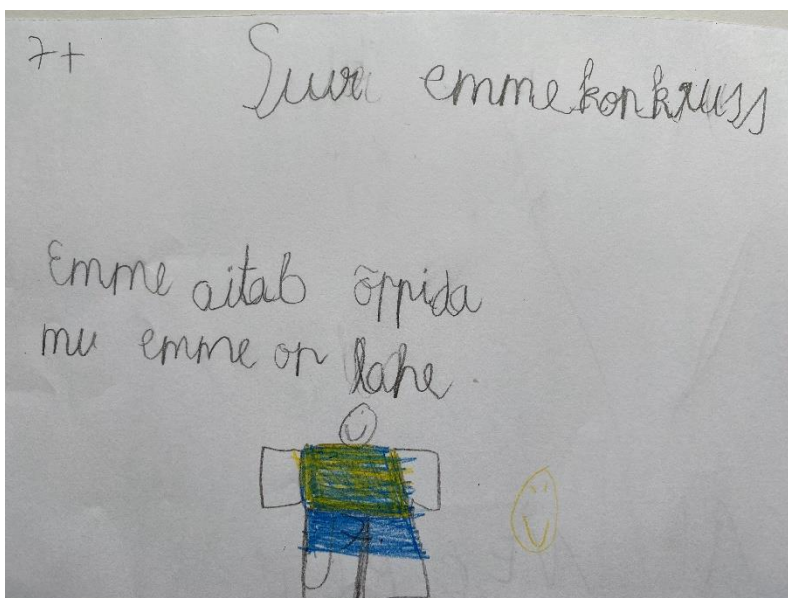 7+
Suur emmekonkruss
Emme aitab õppida
mu emme on lahe.